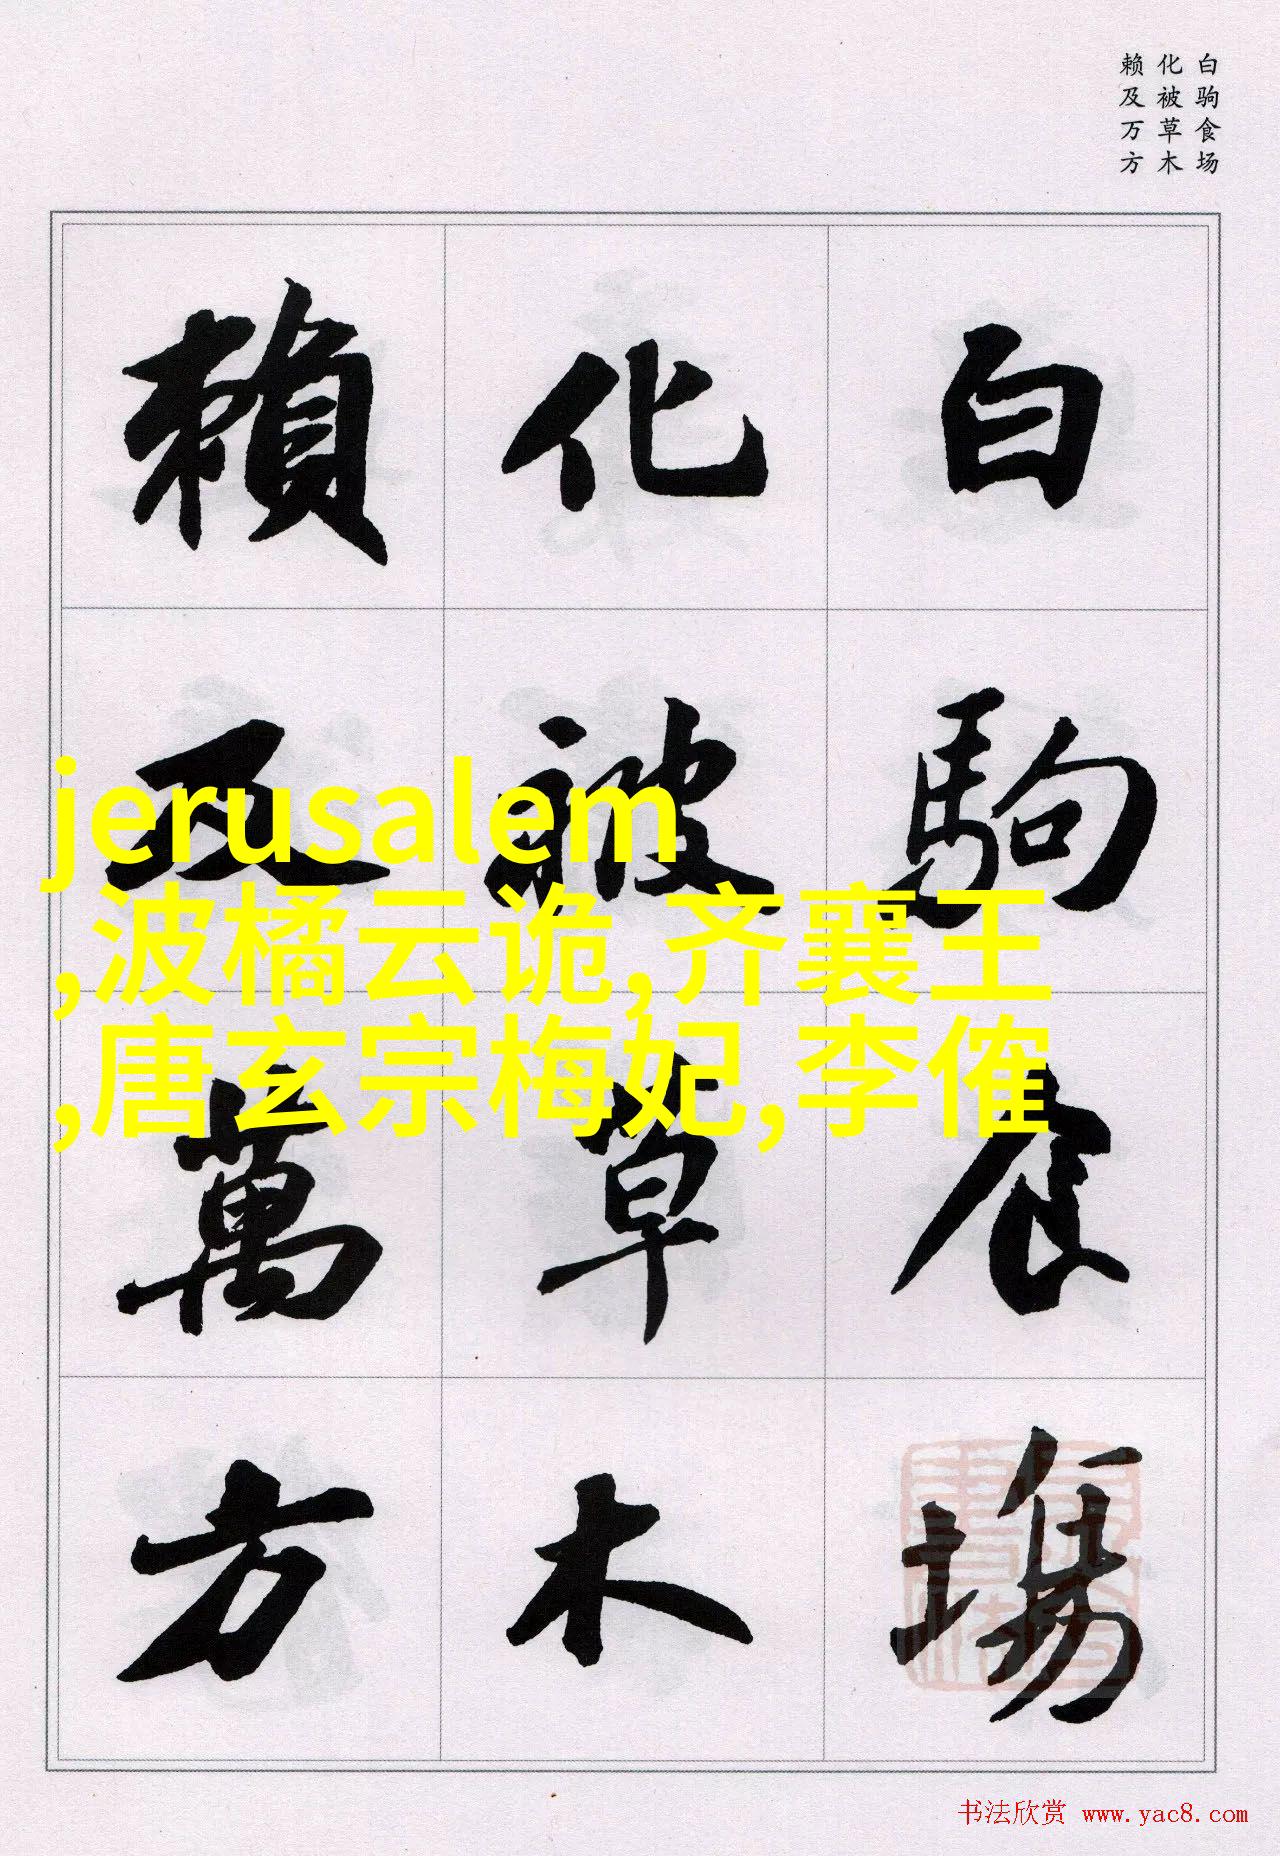 白驹食场
化被草木
赖及万方
白駒食場
化被草木
賴及萬方
jerusalem
,波橘云诡,齐襄王
,唐玄宗梅妃,李傕
书法欣赏 www.yac8.com